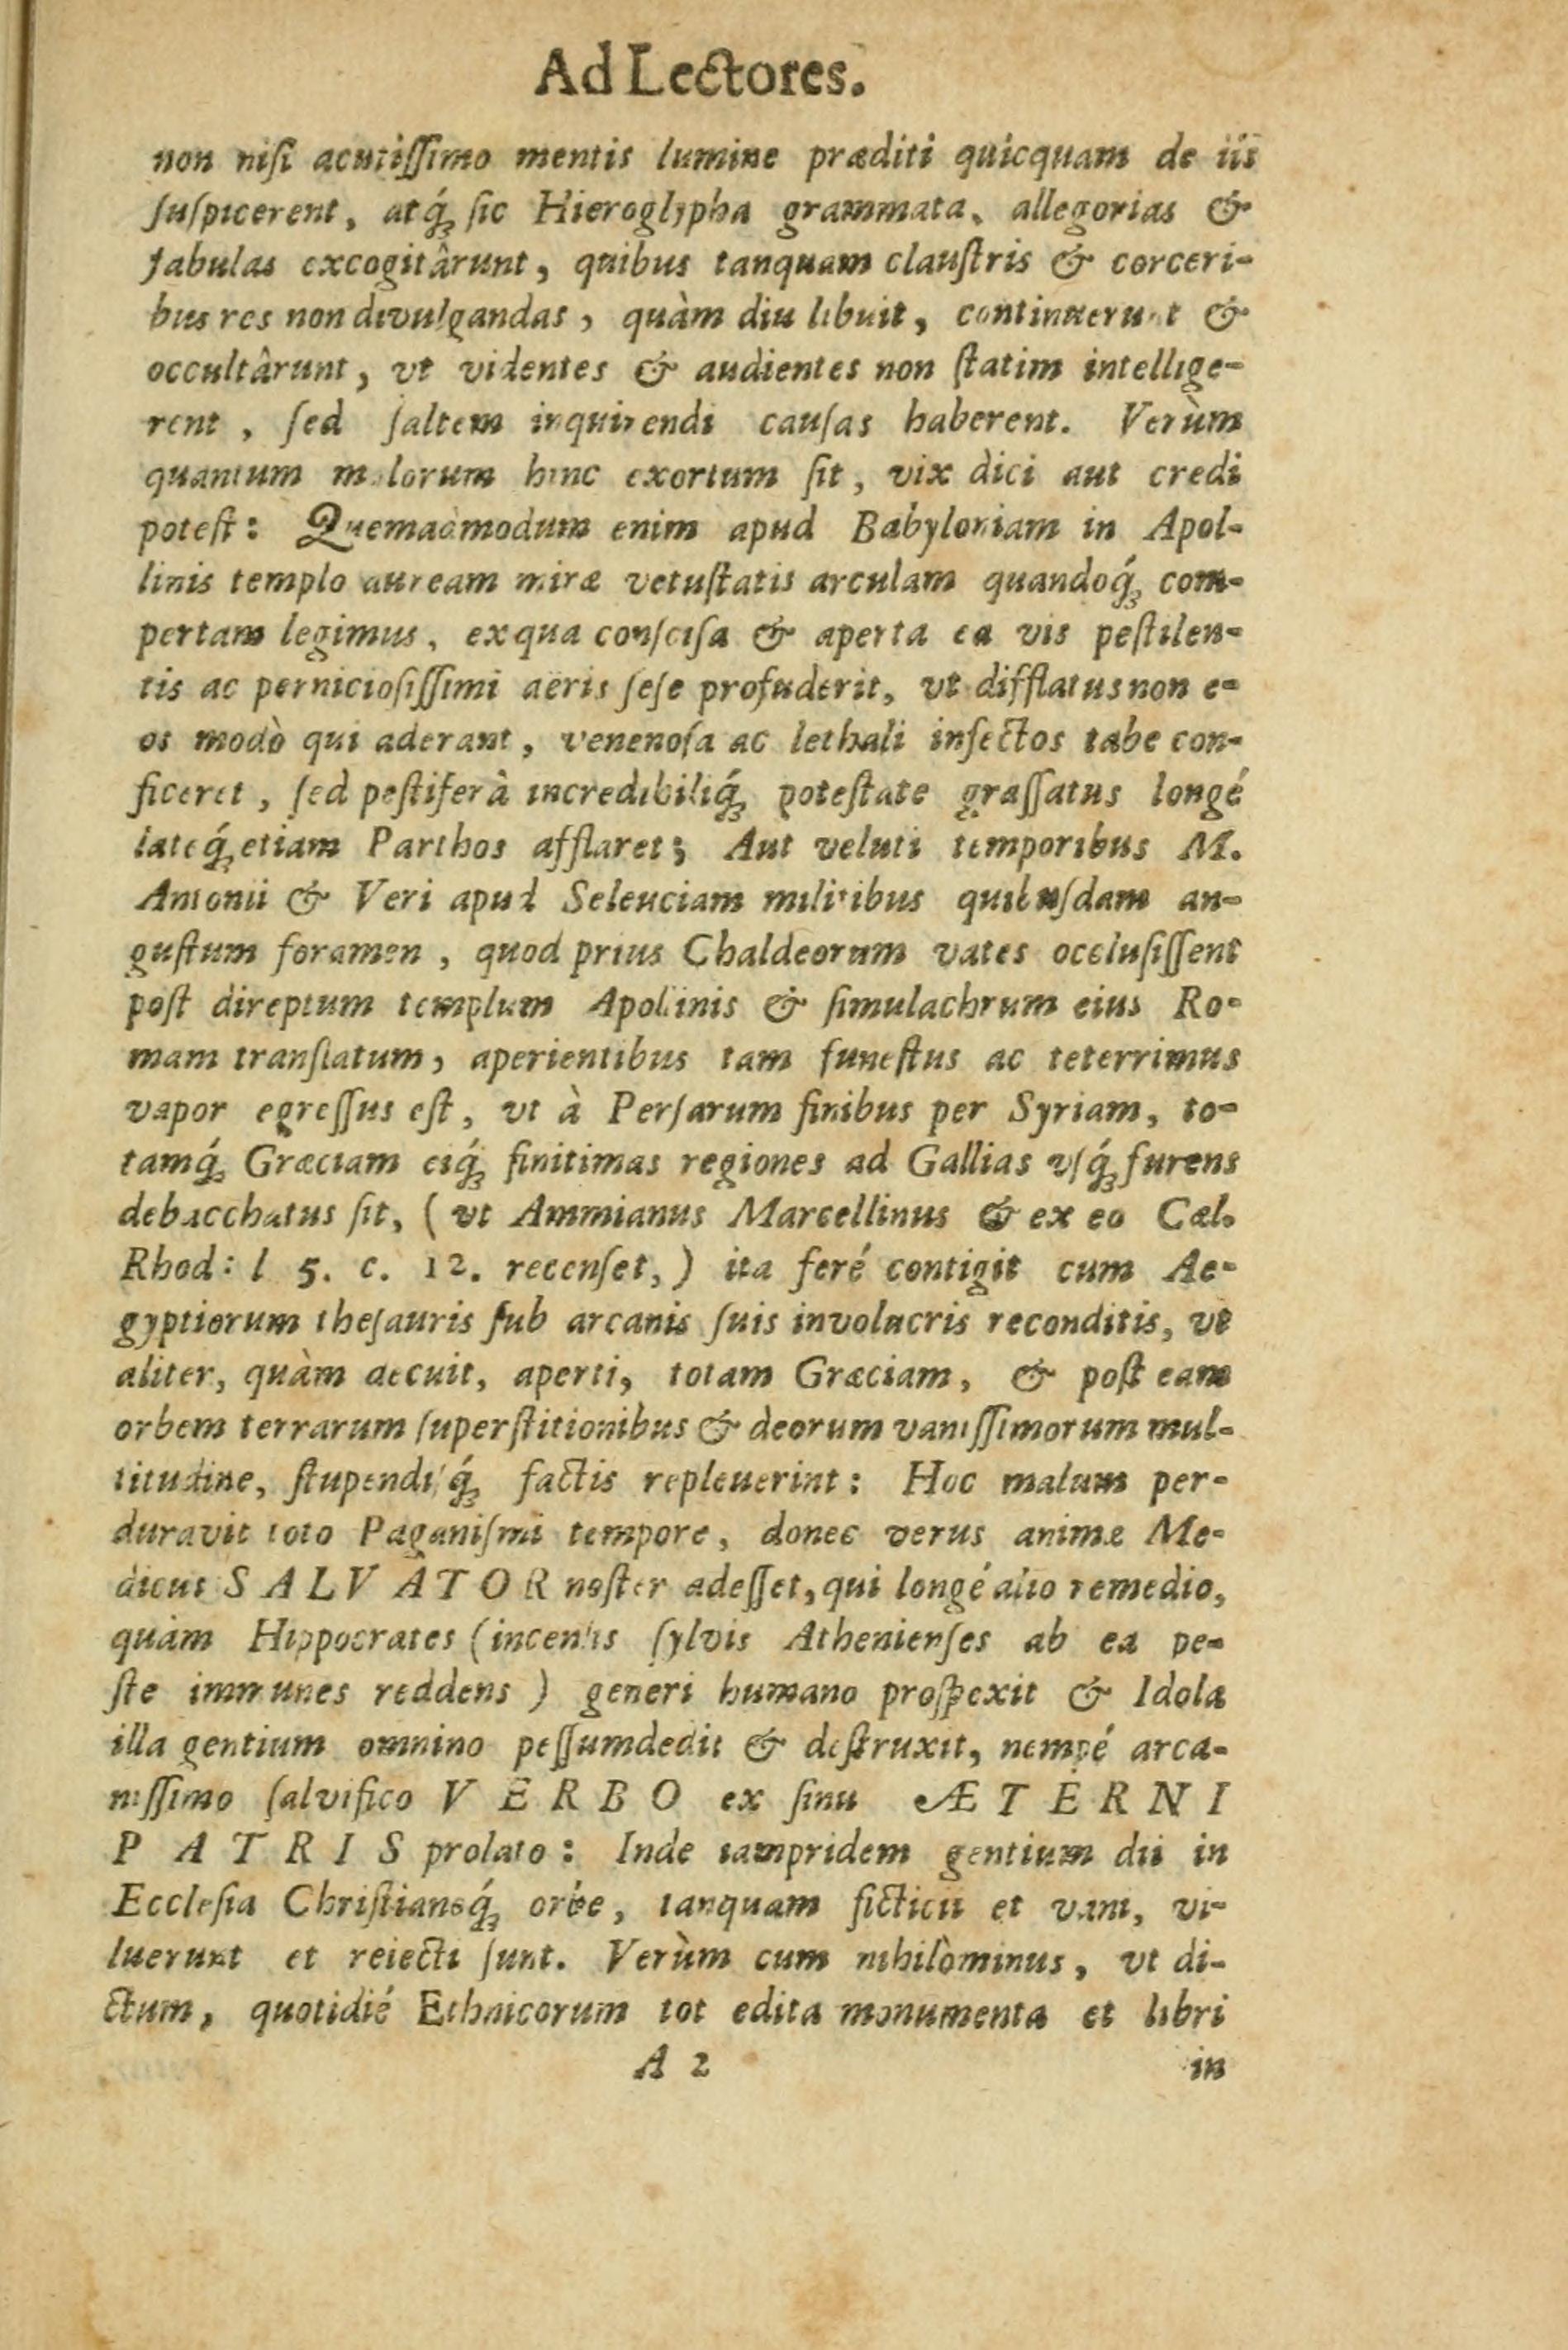 Ad Lectores.
non niſi acutiſſimo mentis lumine præditi quicquam de iis
ſuſpicerent, atq́ꝫ ſic Hieroglypha grammata, allegorias &
fabulas excogitârunt, quibus tanquam clauſtris & corceri-
bus res non divulgandas, quàm diu libuit, continuerunt &
occultârunt, vt videntes & audientes non ſtatim intellige-
rent, ſed ſaltem inquirendi cauſas haberent. Verùm
quantum malorum hinc exortum ſit, vix dici aut credi
poteſt: Quemadmodum enim apud Babyloniam in Apol-
linis templo auream miræ vetuſtatis arculam quandoq́ꝫ com-
pertam legimus, ex qua conſciſa & aperta ea vis peſtilen-
tis ac pernicioſiſſimi aëris ſeſe profuderit, vt difflatus non e-
os modò qui aderant, venenoſa ac lethali inſectos tabe con-
ficeret, ſed peſtiferà incredibiliq́ꝫ poteſtate graſſatus longé
lateq́ꝫ etiam Parthos afflaret; Aut veluti temporibus M.
Antonii & Veri apud Seleuciam militibus quibuſdam an-
guſtum foramen, quod prius Chaldeorum vates occluſiſſent
poſt direptum templum Apollinis & ſimulachrum eius Ro-
mam tranſlatum, aperientibus tam funeſtus ac teterrimus
vapor egreſſus eſt, vt à Perſarum finibus per Syriam, to-
tamq́ꝫ Græciam eiq́ꝫ finitimas regiones ad Gallias vſq́ꝫ furens
debacchatus ſit, (vt Ammianus Marcellinus & ex eo Cæl.
Rhod: l 5. c. 12. recenſet,) ita feré contigit cum Ae-
gyptiorum theſauris ſub arcanis ſuis involucris reconditis, vt
aliter, quàm decuit, aperti, totam Græciam, & poſt eam
orbem terrarum ſuperſtitionibus & deorum vaniſſimorum mul-
titudine, ſtupendiſq́ꝫ factis repleuerint: Hoc malum per-
duravit toto Paganiſmi tempore, donec verus animæ Me-
dicus SALVATOR noſter adeſſet, qui longé alio remedio,
quàm Hippocrates (incenſis ſylvis Athenienſes ab ea pe-
ſte immunes reddens) generi humano proſpexit & Idola
illa gentium omnino peſſumdedit & deſtruxit, nempé arca-
niſſimo ſalvifico VERBO ex ſinu ÆTERNI
PATRIS prolato: Inde iampridem gentium dii in
Eccleſia Chriſtianoq́ꝫ orbe, tanquam ficticii et vani, vi-
luerunt et reiecti ſunt. Verùm cum nihilòminus, vt di-
ctum, quotidié Ethnicorum tot edita monumenta et libri
A 2 in